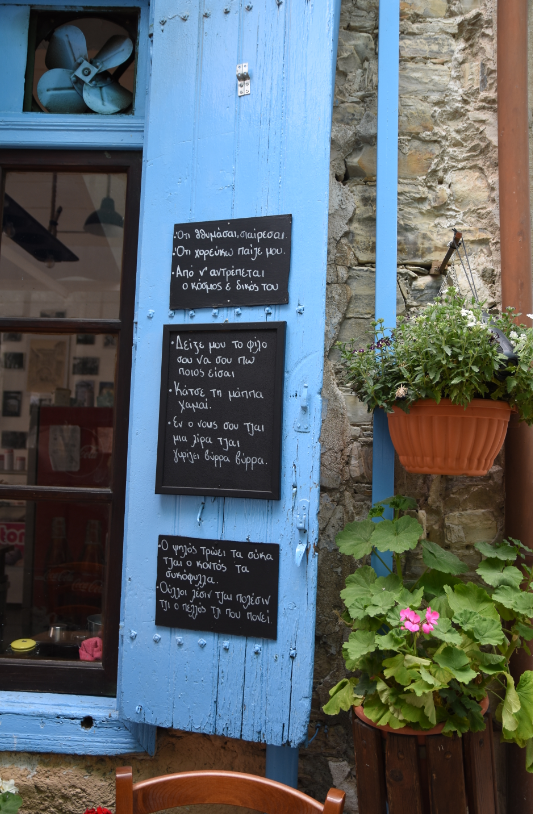 ·Ότι αθυμάσαι, σιαίρεσαι.
·Ότι χορεύκω παίζε μου.
·Από ν' αντρέπεται
ο κόσμος έ δικός του
·Δείξε μου το φίλο
σου να σου πω
ποιος είσαι
·Κάτσε τη μάππα
χαμαί.
·Εν ο νους σου τζαι
μια λίρα τζαι
γυρίζει βύρρα βύρρα.
·Ο ψηλός τρώει τα σύκα
τζαι ο κοντός τα
συκόφυλλα.
·Ούλλοι λέσιν τζαι πολέσιν
τζι ο πελλός τζι που πονεί.